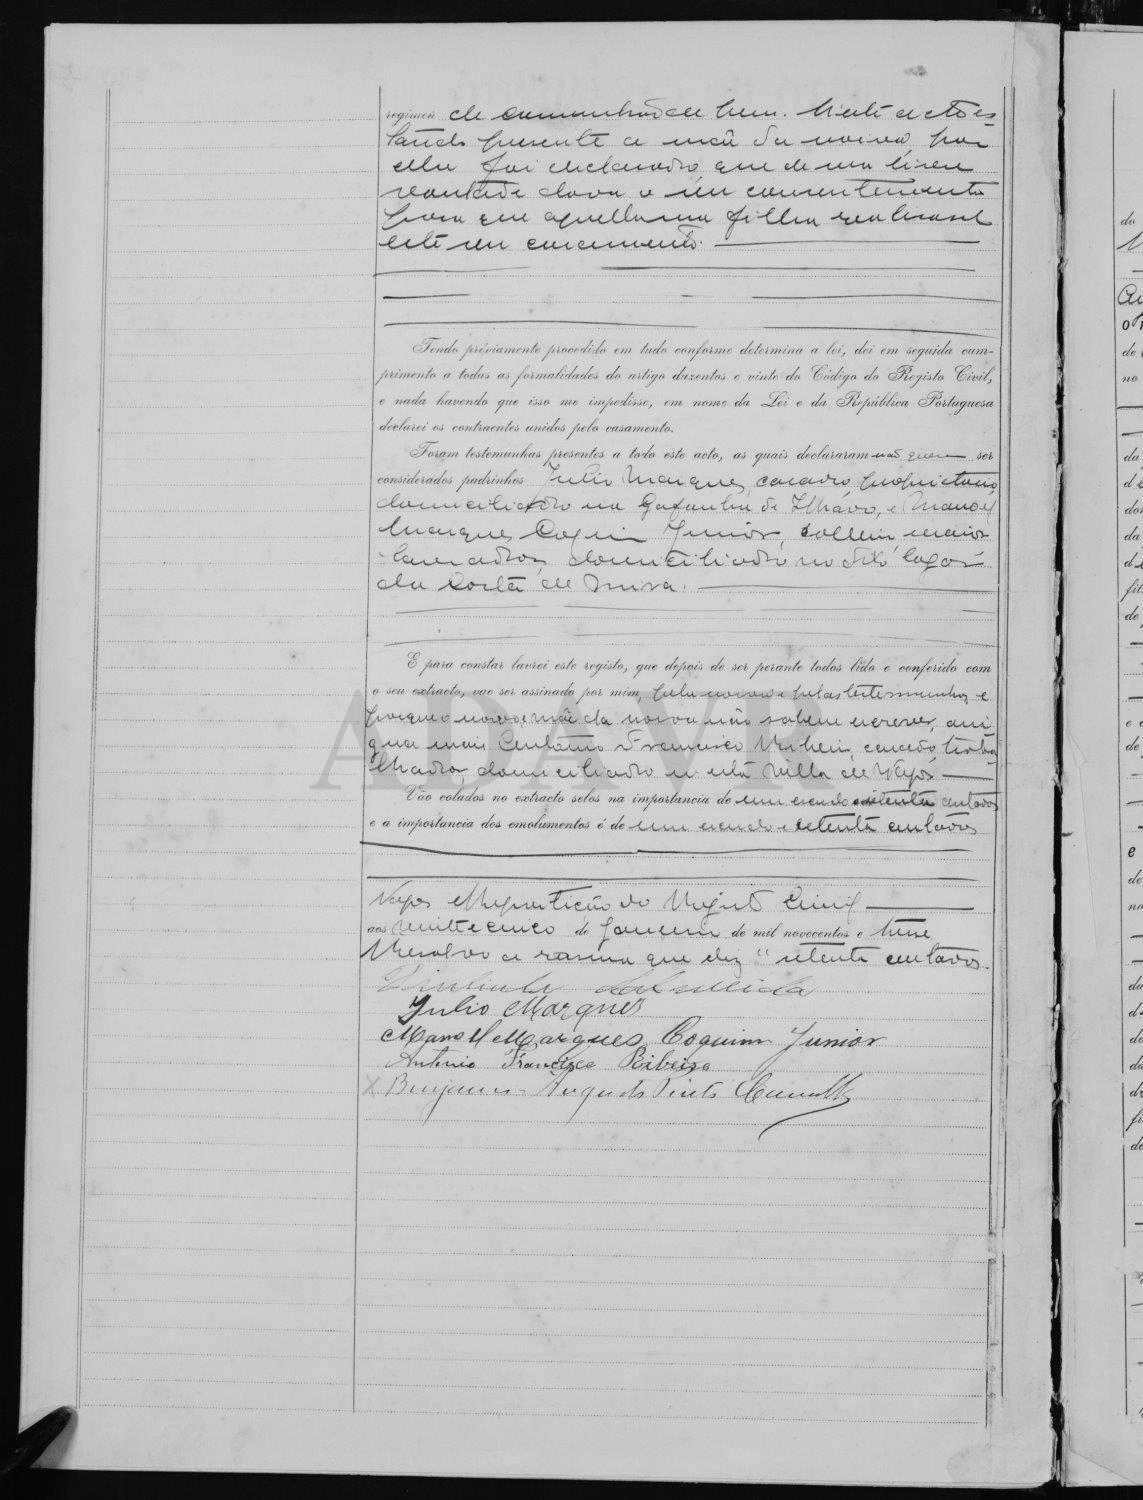 regimen de comunhão de bens. N'este acto es-
tando presente a mãe da noiva, por
ella foi declarado que de sua livre
vontade dava o seu consentimento
para que aquella sua filha realisasse
este seu casamento.
Tendo préviamente procedido em tudo conforme determina a lei, dei em seguida cum-
primento a todas as formalidades do artigo duzentos e vinte do Código do Registo Civil,
e nada havendo que isso me impedisse, em nome da Lei e da República Portuguesa
declarei os contraentes unidos pelo casamento.
Foram testemunhas presentes a todo este acto, as quais declararam não querer ser
considerados padrinhos Julio Marques, casado, proprietario,
domiciliado na Gafanha de Ilhavo, e Manoel
Marques Coquim Junior, solteiro, maior
lavrador, domiciliado no dito logar
da Costa de
E para constar lavrei este registo, que depois de ser perante todos lido e conferido com
o seu extracto, vae ser assinado por mim, pelas testemunhas, e
porque o noivo e mãe da noiva não sabem escrever, assi
gna mais Antonio Francisco Ribeiro, casado, traba
lhador, domiciliado n'esta villa de Vagos
Vão colados no extracto selos na importancia de um escudo e setenta centavos
e a importancia dos emolumentos é de um escudo e setenta centavos
Vagos e Repartição do Registo Civil
aos vinte e cinco de Janeiro de mil novecentos e treze
Resalvo a rasura que diz "setenta centavos.
Julio Marques
Manoel Marques Coquim Junior
Antonio Francisco Ribeiro
X Benjamin Augusto Pinto
ADAVR